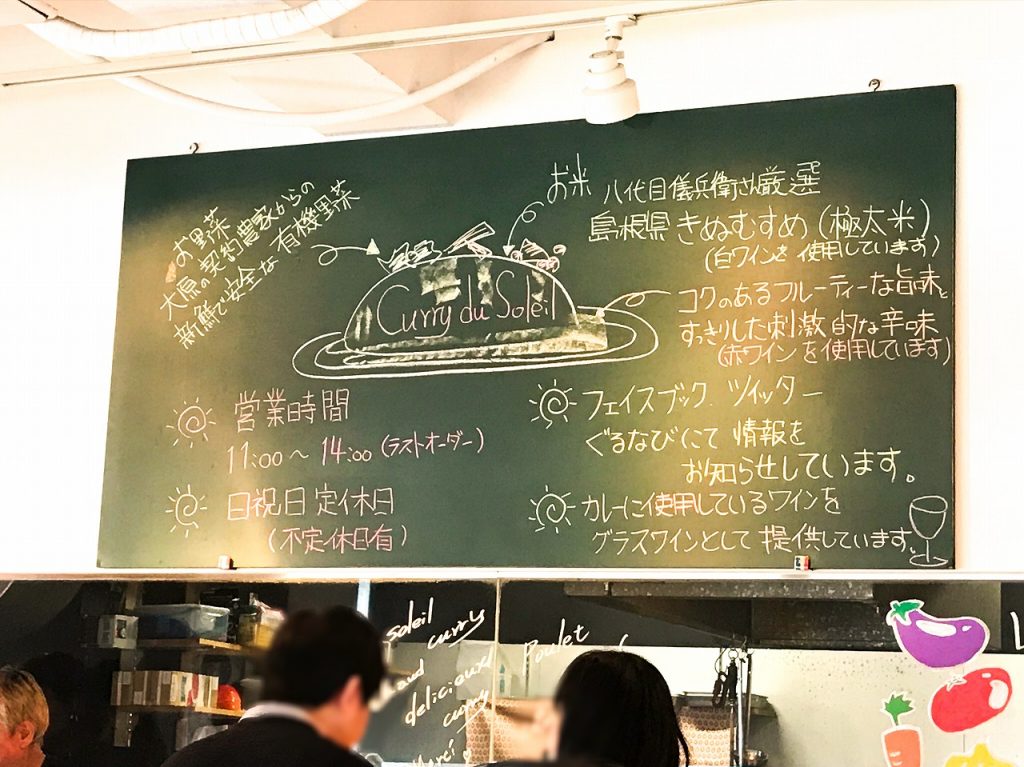 お野菜
大原の契約農家からの
新鮮で安全な有機野菜
お米 八代目儀兵衛さん厳選
島根県 きぬむすめ (極太米)
(白ワインを使用しています)
Curry du Soleil
コクのあるフルーティーな旨味と
すっきりした刺激的な辛味
(赤ワインを使用しています)
営業時間
11:00〜14:00 (ラストオーダー)
日祝日定休日
(不定休日有)
フェイスブック、ツイッター
ぐるなびにて 情報を
お知らせしています。
カレーに使用しているワインを
グラスワインとして提供しています。
soleil
curry
and
delicieux!
curry
Poulet